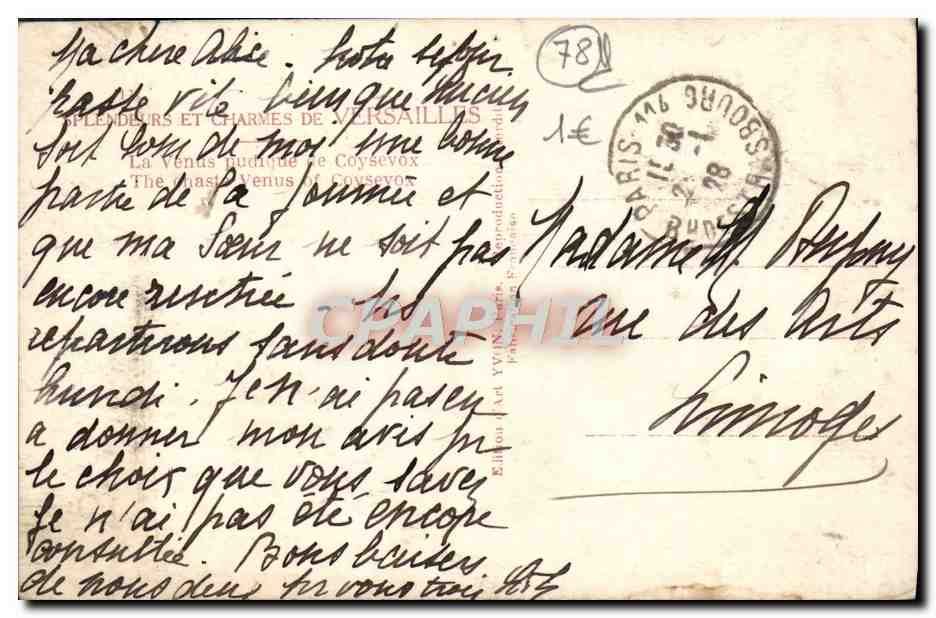 Ma chere Alice. Notre séjour
passe vite bien que Lucien
SPLENDEURS ET CHARMES DE VERSAILLES
soit loin de moi une bonne
La Vénus pudique de Coysevox
The chaste Venus of Coysevox
partie de la journée et
que ma Sœur ne soit pas
encore rentrée.
repartirons sans doute
lundi. Je n'ai pas eu
a donner mon avis pr
le choix que vous savez
Je n'ai pas été encore
consultée. Bons baisers
de nous deux pr vous trois
Edition d'Art YVON, Paris. Reproduction interdite
Fabrication Française
78
1€
PARIS 116 R. DE STRASBOURG
Madame
rue des Arts
Limoges
CPAPHIL